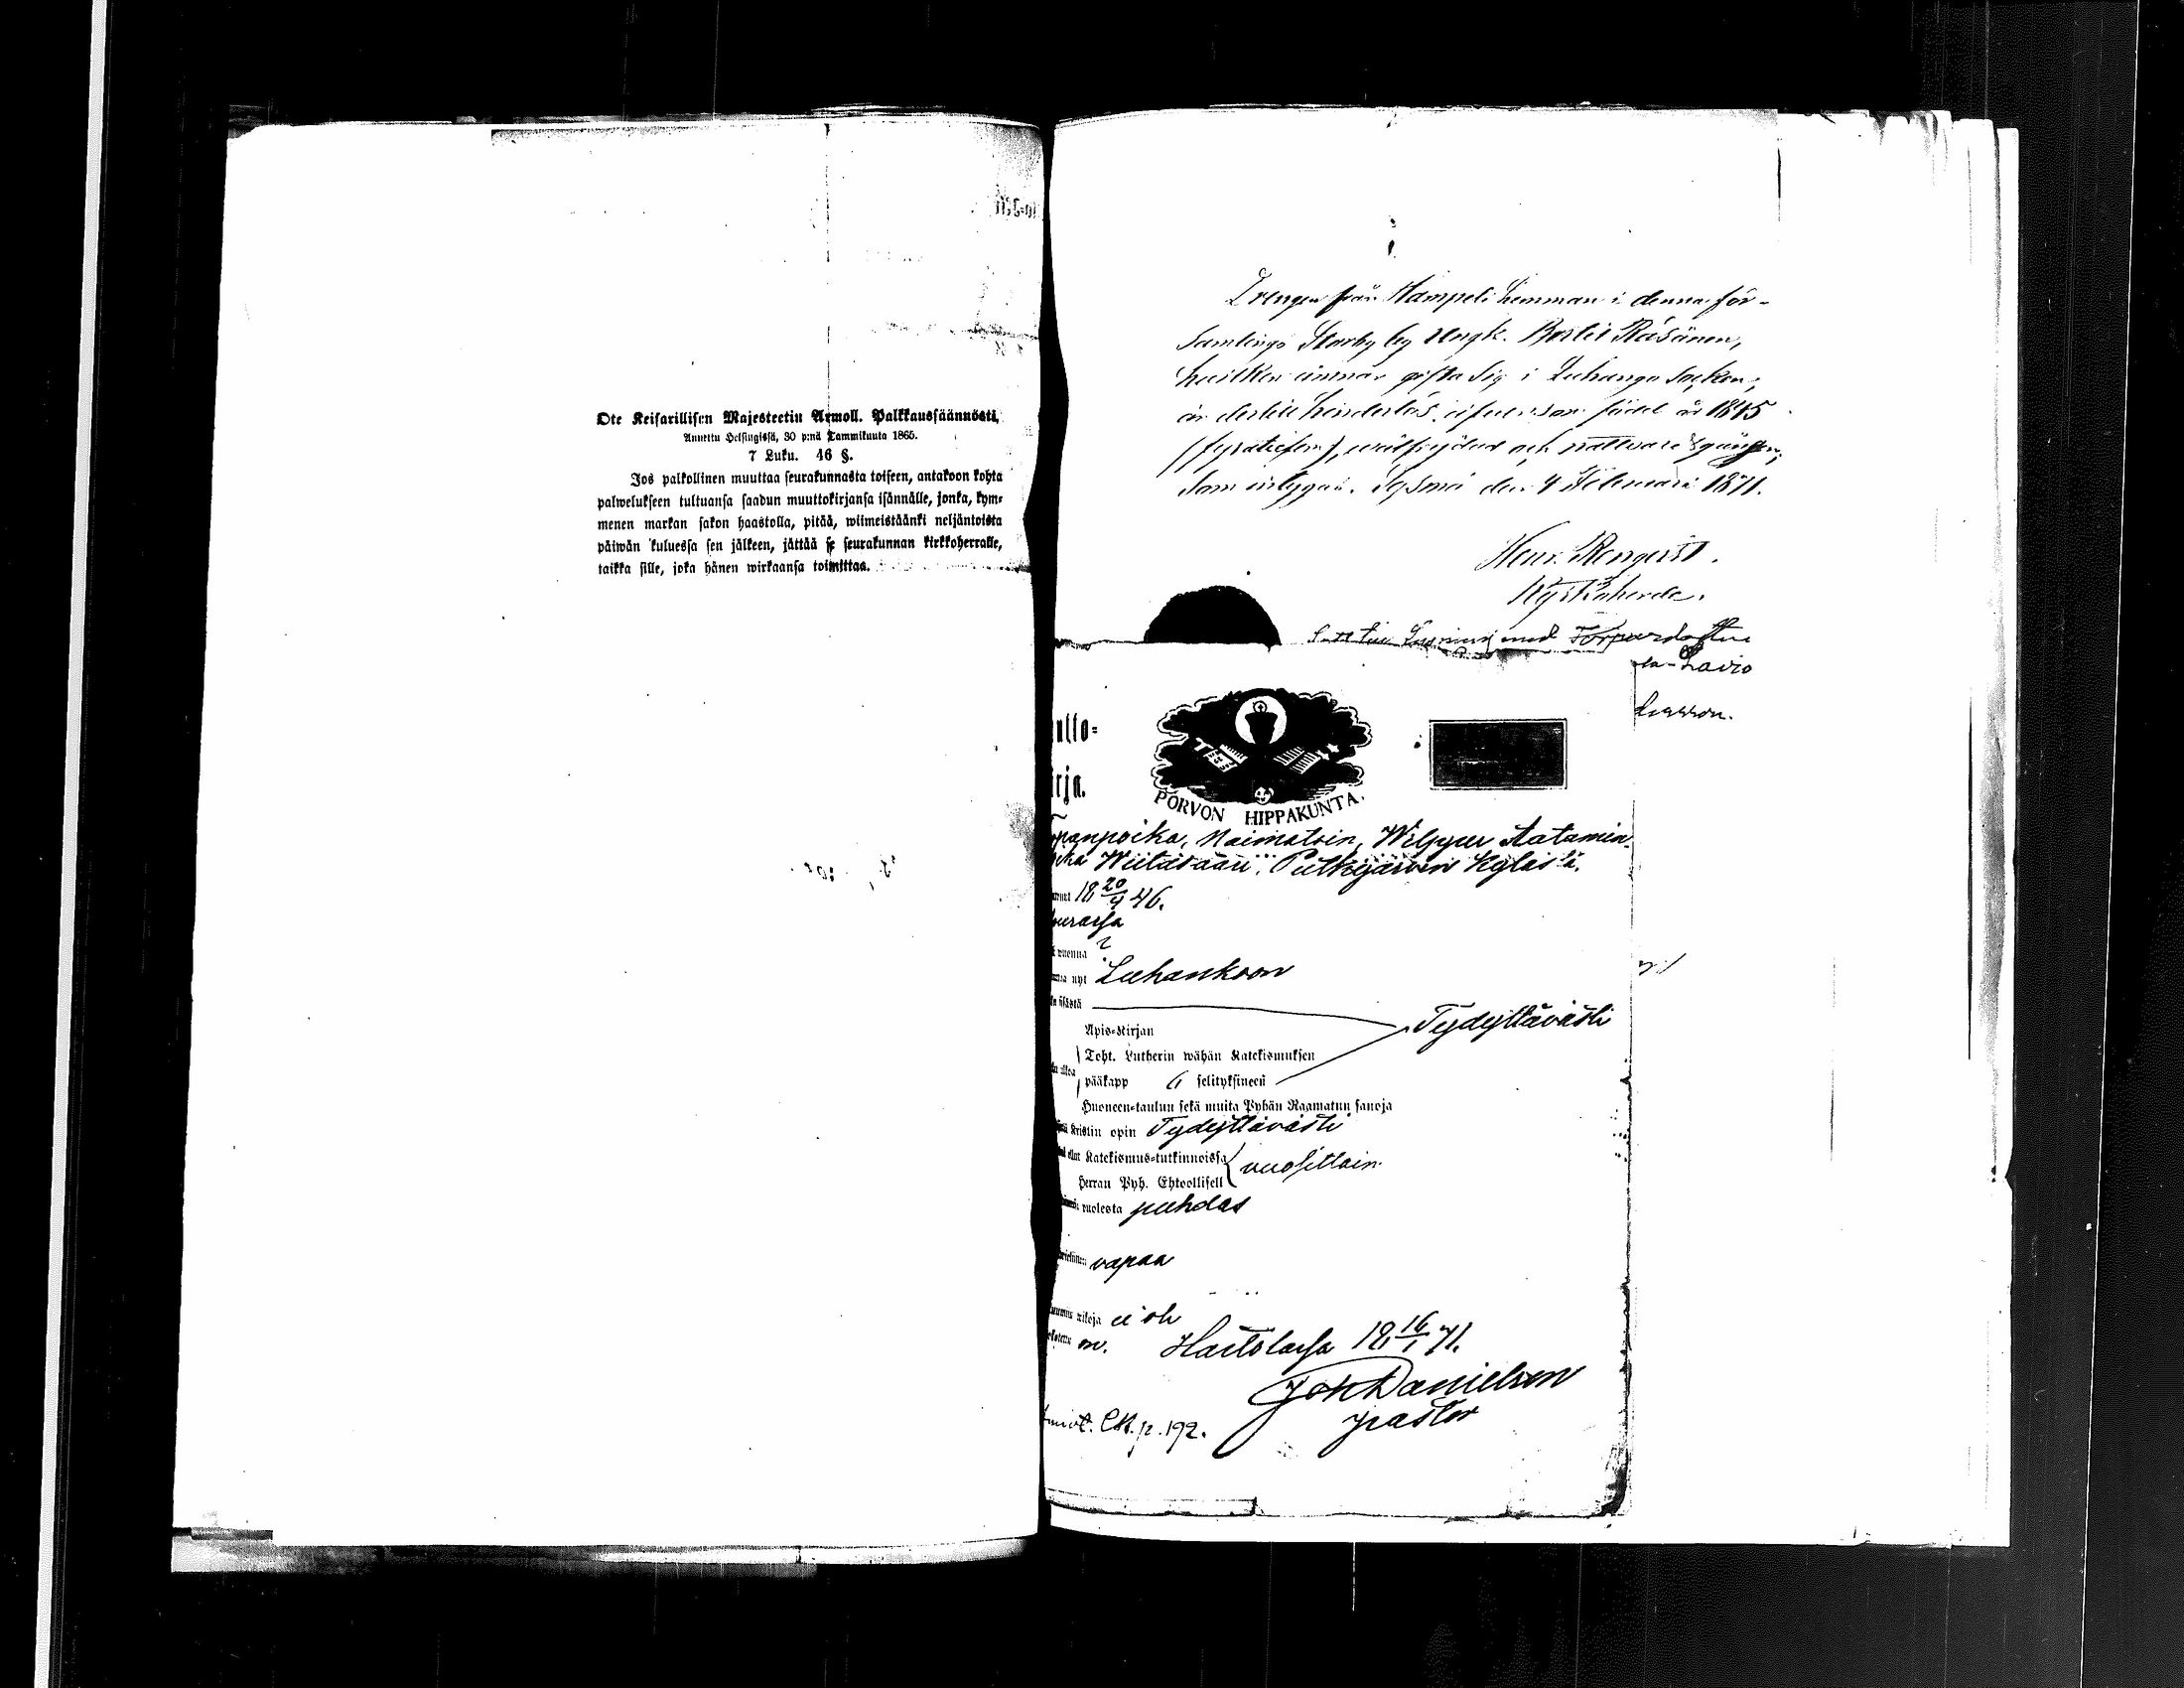 Ote Keisarillisen Majesteetin Armoll. Palkkaussäännösti,
Annettu Helsingissä, 30 p:nä Tammikuuta 1865.
7 Luku. 46 §.
Jos palkollinen muuttaa seurakunnasta toiseen, antakoon kohta
palwelukseen tultuansa saadun muuttokirjansa isännälle, jonka, kym-
menen markan sakon haastolla, pitää, wiimeistäänki neljäntoista
päiwän kuluessa sen jälkeen, jättää se seurakunnan kirkkoherralle,
taikka sille, joka hänen wirkaansa toimittaa.
Drengen från Hampeli hemman i denna för-
samlings Storby by Ungk. Räsänen,
hvilken ämnar gifta sig i Luhango socken,
är dertill hinderlös, född år 1845
(fyratiofem), välfrejdad och nattvardsgången,
som intygas. Sysmä den 4 Februari 1871.
Henr. Renqvist.
Kyrkoherde.
med
Lavio
utto-
irja.
PORVON HIPPAKUNTA.
panpoika, Naimatoin, Wilppu Aatamin-
Wiitasaari, Putkijärven Kylästä.
18 20/4 46.
wuonna
nyt Luhankoon
sisästä
Apis-Kirjan Tydyttävästi
Toht. Lutherin wähän Katekismuksen
pääkapp 6 selityksineen
Huoneen-taulun sekä muita Pyhän Raamatun sanoja
Kristin opin Tydyttävästi
ollut Katekismus-tutkinnoissa vuosittain
Herran Pyh. Ehtoollisell
puolesta puhdas
vapaa
wikoja ei ole
on. Hartolassa 18 16/1 71.
Joh Danielson
pastor
p. 192.